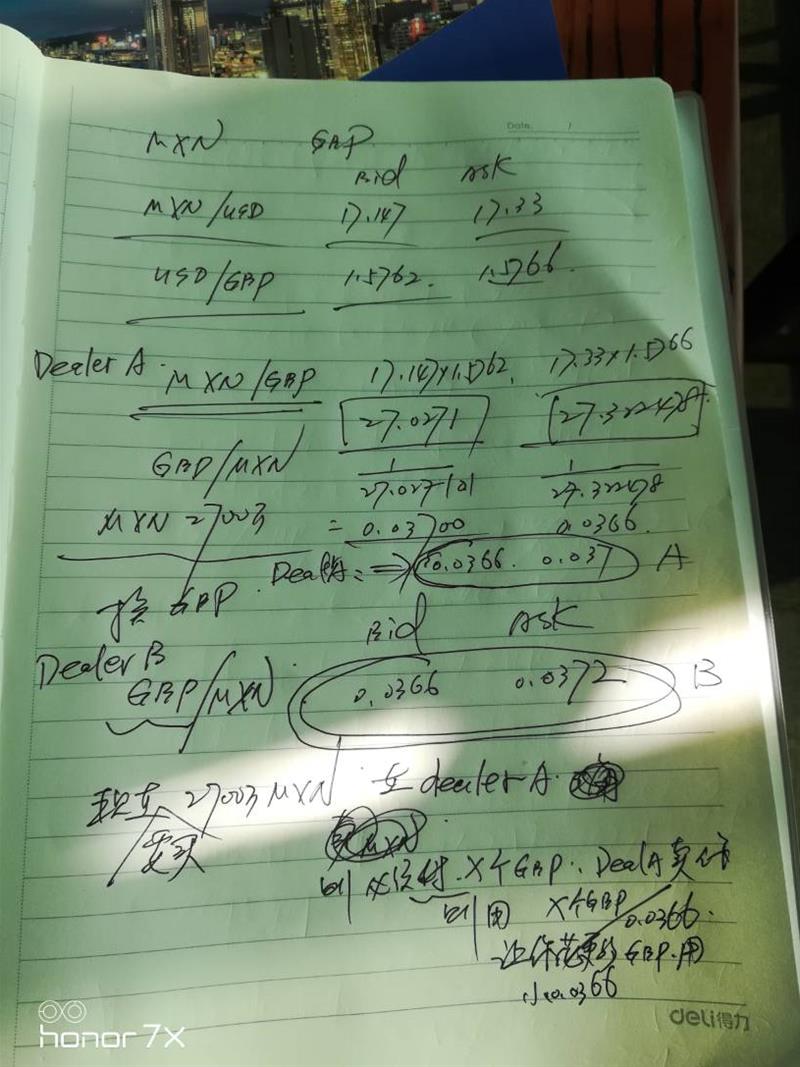 Date. /
MXN GBP
Bid ASK
MXN/USD 17.147 17.33
USD/GBP 1.5762. 1.5766.
Dealer A. MXN/GBP 17.147×1.5762. 17.33×1.5766
27.0271 27.322478
GBP/MXN 1/27.027101 1/27.322478
MXN 2700万 = 0.03700 0.0366.
Deal A: ⇒ 0.0366. 0.037 A
换 GBP.
Bid ASK
Dealer B
GBP/MXN 0.0366 0.0372 B
现在 2700万 MXN. 在 dealer A.
要买
MXN
则 X个GBP. Deal A 卖
则用 X个GBP 0.0366.
让你花 GBP.用
小 0.0366
deli得力
honor 7X